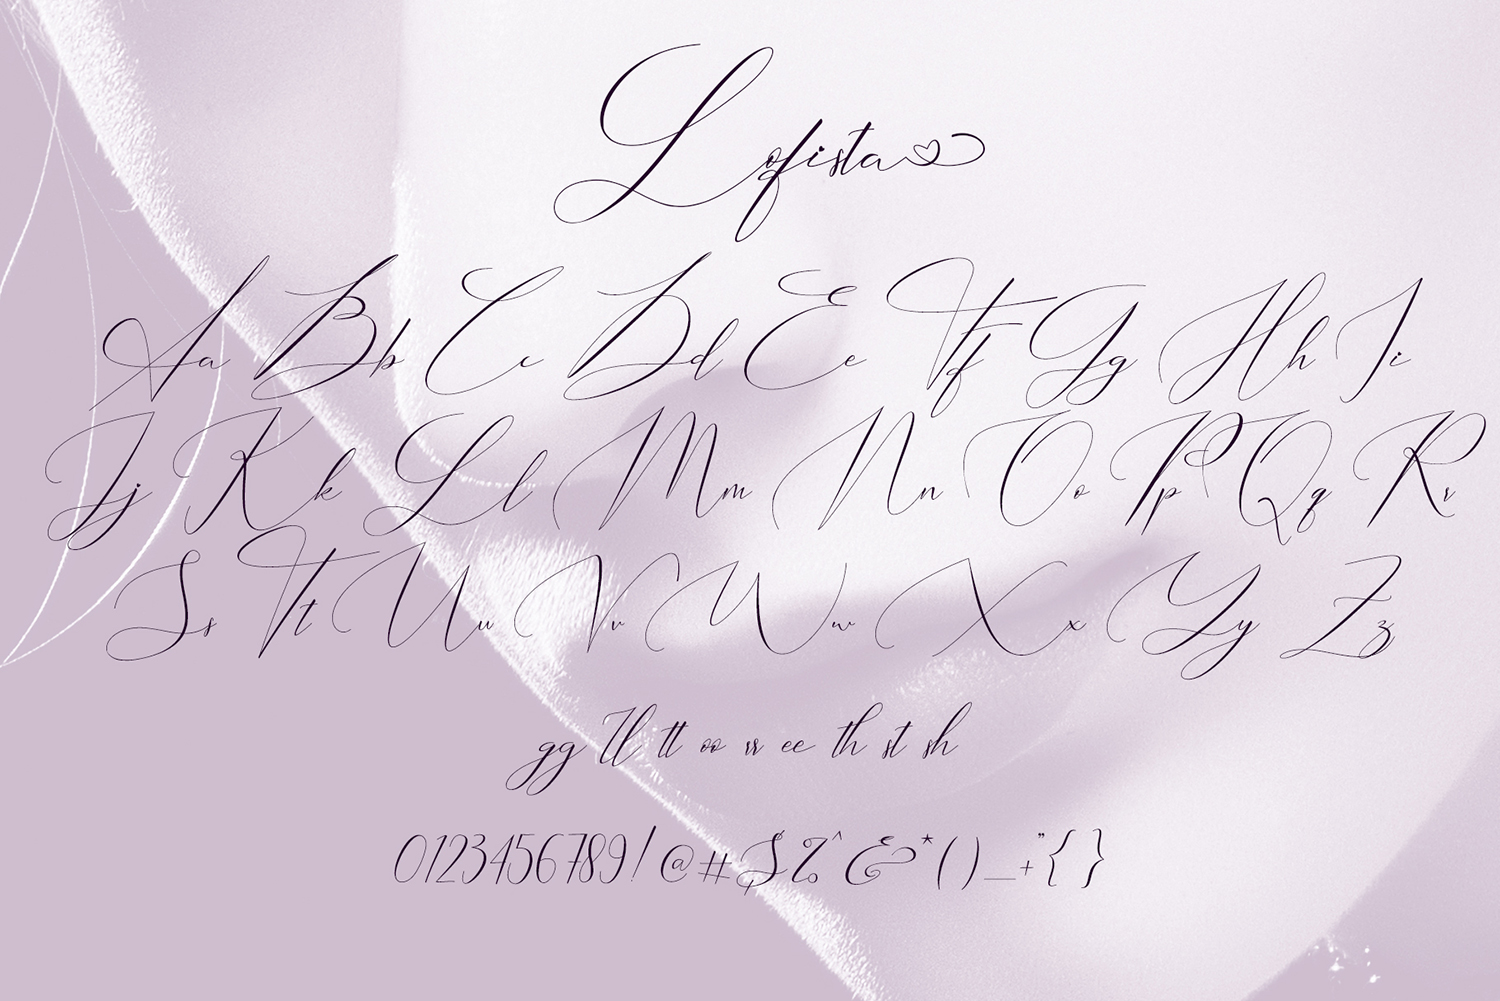 Lofista
Aa Bb Cc Dd Ee Ff Gg Hh Ii
Jj Kk Ll Mm Nn Oo Pp Qq Rr
Ss Tt Uu Vv Ww Xx Yy Zz
gg ll tt oo rr ee th st sh
0123456789!@#$%^&*()_+"{}